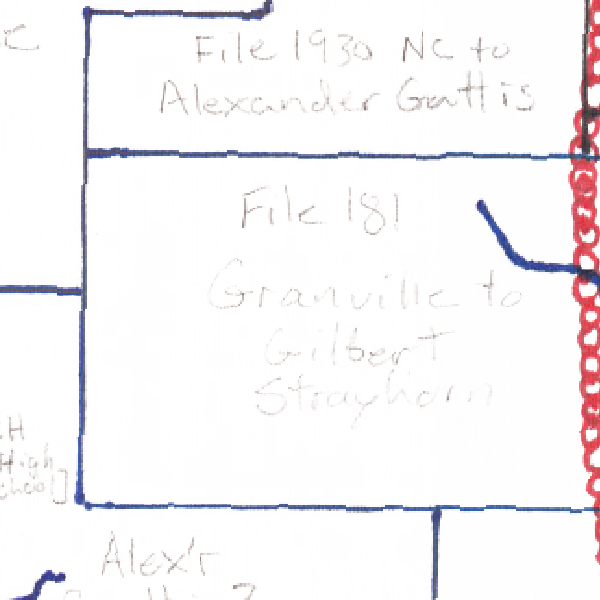 File 1930 NC to
Alexander Gattis
File 181
Granville to
Gilbert
Strayhorn
High
Alex'r